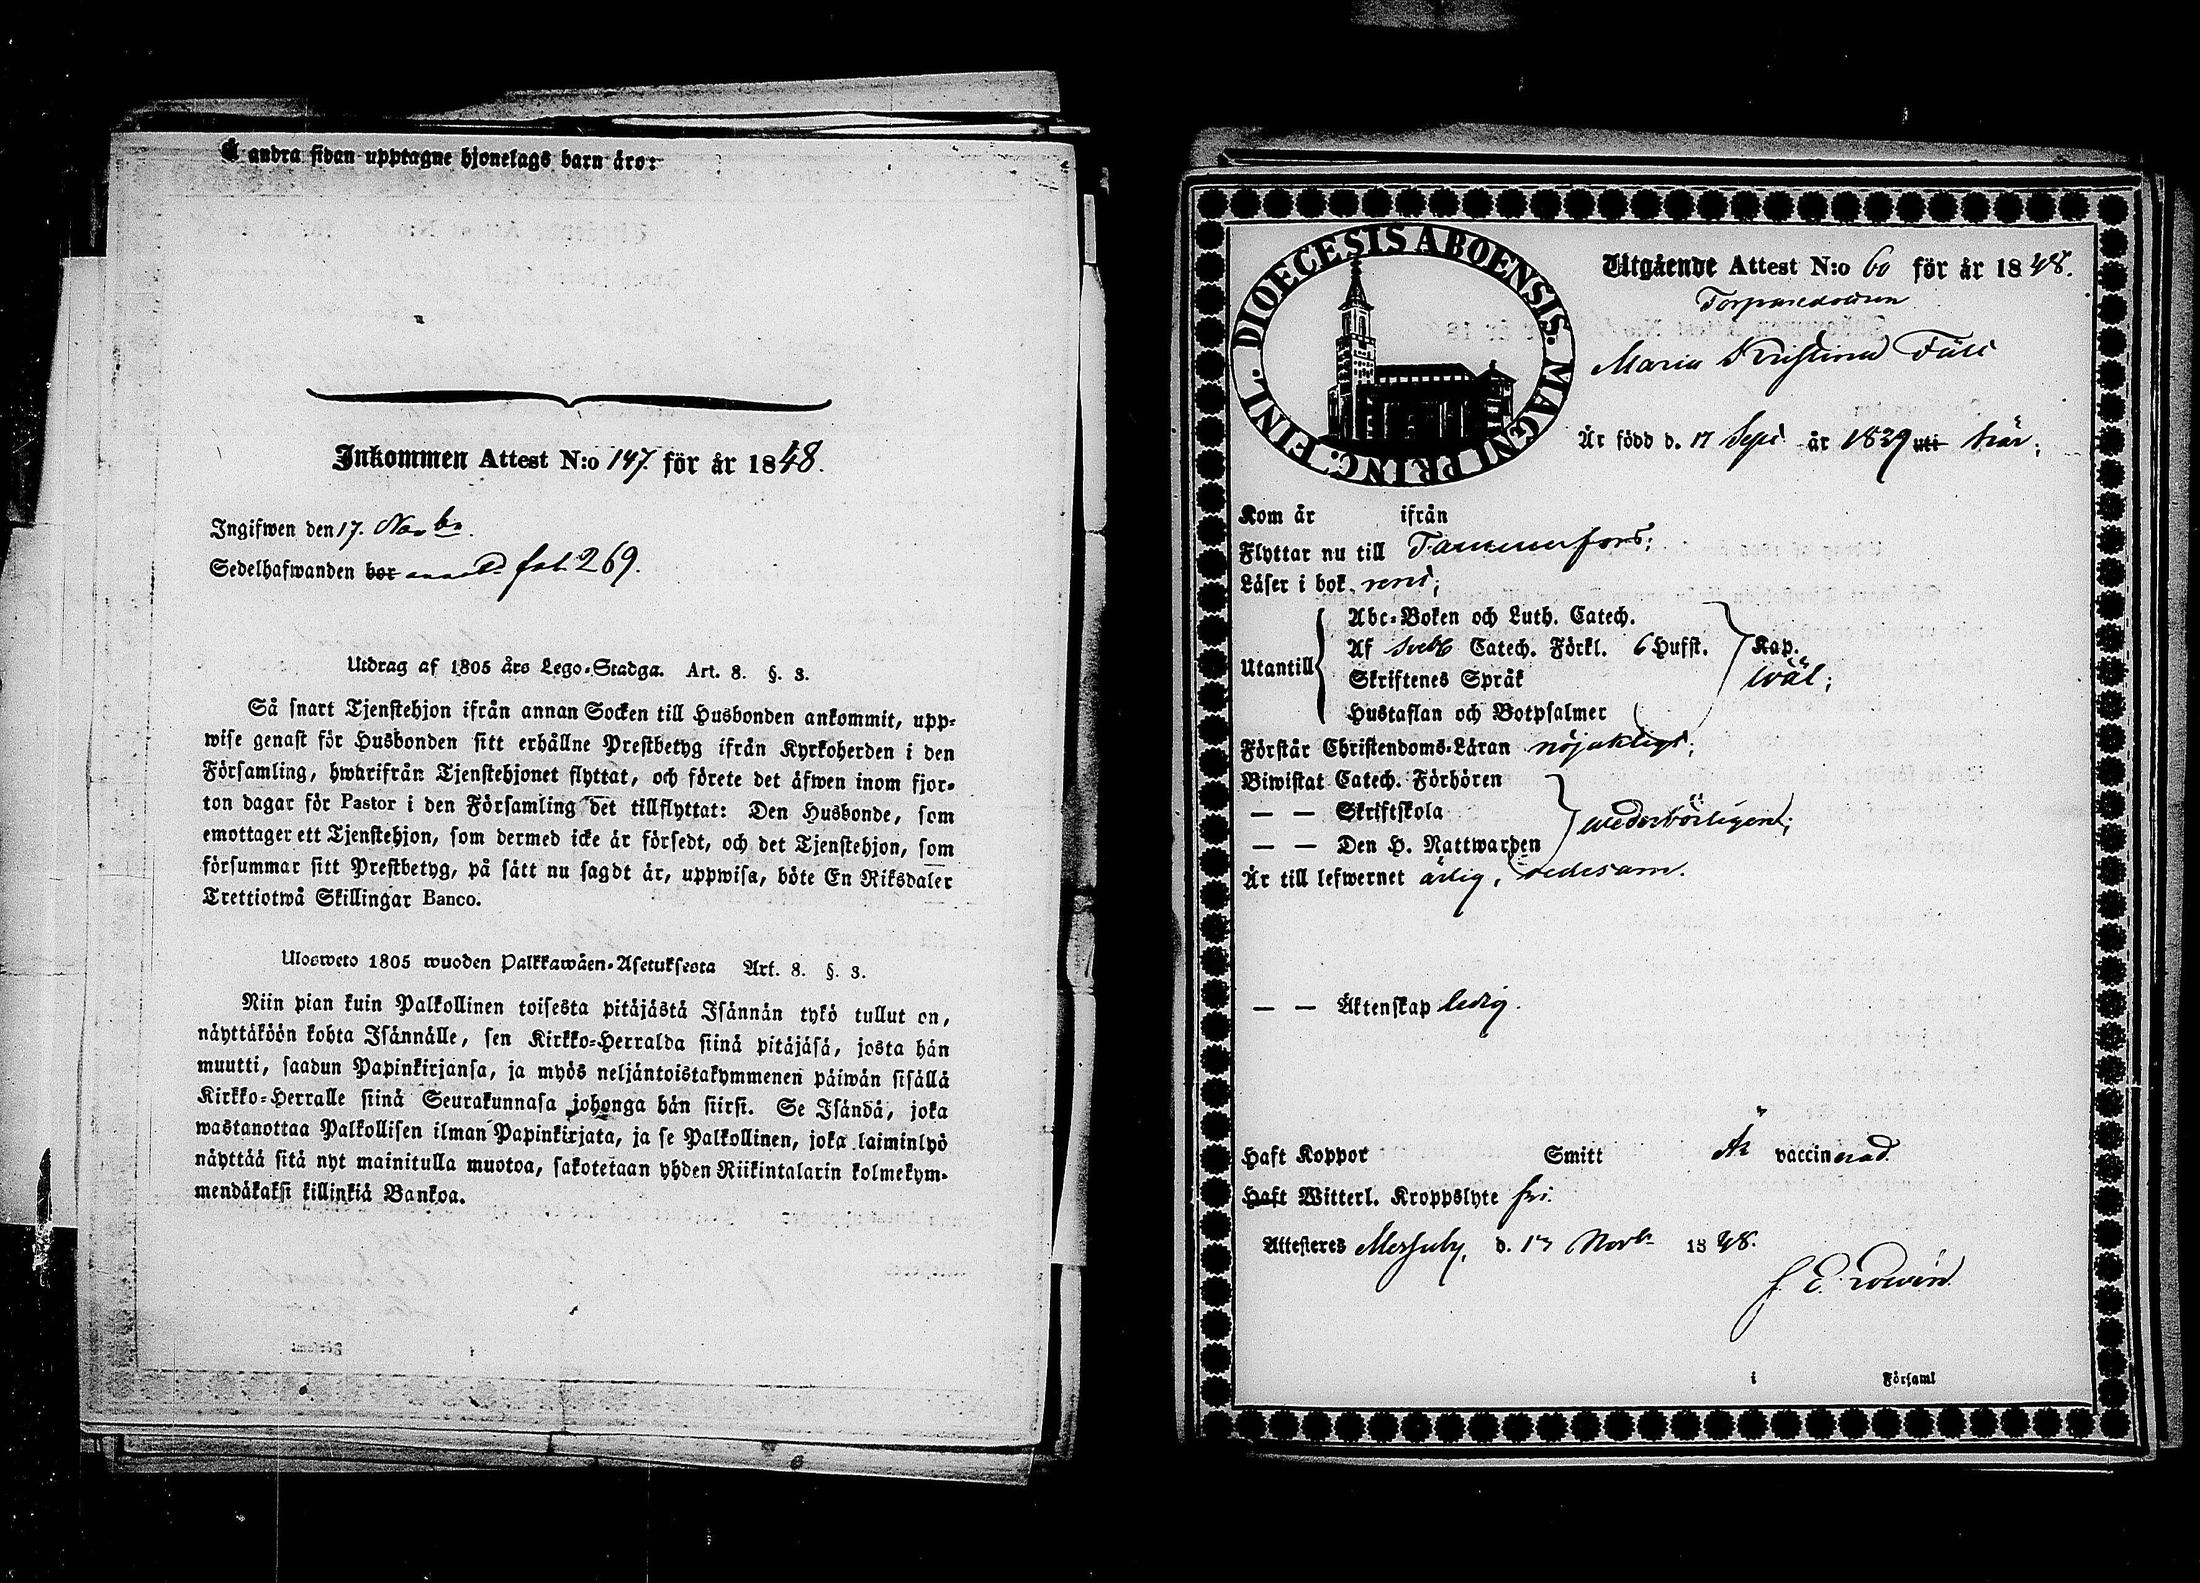 Å andra sidan upptagne hjonelags barn äro:
Inkommen Attest N:o 147. för år 1848.
Ingifwen den 17. Novbr.
Sedelhafwanden bor fol. 269.
Utdrag af 1805 års Lego-Stadga. Art. 8. §. 3.
Så snart Tjenstehjon ifrån annan Socken till Husbonden ankommit, upp-
wise genast för Husbonden sitt erhållne Prestbetyg ifrån Kyrkoherden i den
Församling, hwarifrån Tjenstehjonet flyttat, och förete det äfwen inom fjor-
ton dagar för Pastor i den Församling det tillflyttat: Den Husbonde, som
emottager ett Tjenstehjon, som dermed icke är försedt, och det Tjenstehjon, som
försummar sitt Prestbetyg, på sätt nu sagdt är, uppwisa, böte En Riksdaler
Trettiotwå Skillingar Banco.
Ulosweto 1805 wuoden Palkkawäen-Asetuksesta Art. 8. §. 3.
Niin pian kuin Palkollinen toisesta pitäjästä Isännän tykö tullut on,
näyttäköön kohta Isännälle, sen Kirkko-Herralda siinä pitäjäsä, josta hän
muutti, saadun Papinkirjansa, ja myös neljäntoistakymmenen päiwän sisällä
Kirkko-Herralle siinä Seurakunnasa johonga hän siirsi. Se Isändä, joka
wastanottaa Palkollisen ilman Papinkirjata, ja se Palkollinen, joka laiminlyö
näyttää sitä nyt mainitulla muotoa, sakotetaan yhden Riikintalarin kolmekym-
mendäkaksi killinkiä Bankoa.
DIOECESIS ABOENSIS. MAGNI PRINC. FINL.
Utgående Attest N:o 60 för år 1848.
Torparedottren
Maria Kristina
Är född d. 17 Sept år 1829 uti här;
Kom år ifrån
Flyttar nu till Tammerfors;
Läser i bok rent;
Utantill
Abc-Boken och Luth. Catech.
Af Sveb. Catech. Förkl. 6 Hufst. Kap.
Skriftenes Språk wäl;
Hustaflan och Botpsalmer
Förstår Christendoms-Läran nöjaktigt;
Biwistat Catech. Förhören
— — Skriftskola wederbörligen;
— — Den H. Nattwarden
Är till lefwernet ärlig, sedesam.
— — Äktenskap ledig.
Haft Koppor Smitt Är vaccinerad
Haft Witterl. Kroppslyte fri.
Attesteres Messuby, d. 13 Novbr 1848.
i Församl